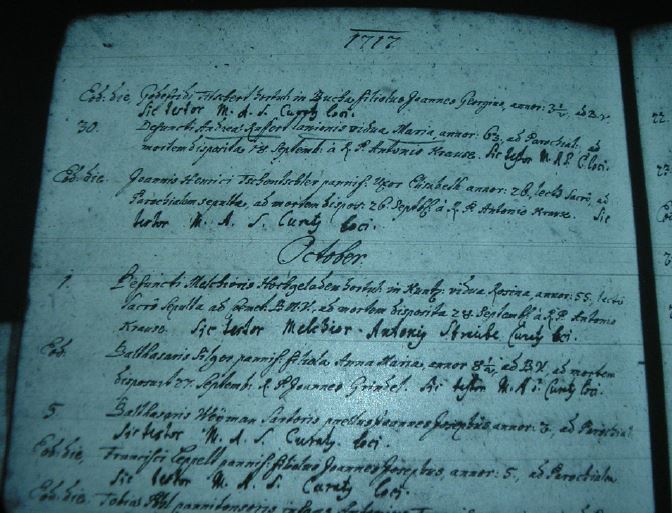 1717.
Eod. die. Godefridi hortul: in Bucha, filiolus Joannes Georgius, annor: 3½, ad B.V.
Sic testor M. A. S. Curaty loci.
30. Defuncti Andreae Ruffert lanionis vidua Maria, annor: 63, ad Parochial: ad
mortem disposita 18 Septemb: à R. P. Antonio Krause. Sic testor M. A. S. C. loci.
Eod. die. Joannis Henrici Tschentscher pannif: Uxor Elisabeth annor: 28, lecto sacro, ad
Parochialem sepulta, ad mortem dispos: 26. Septemb: à R. P. Antonio Krause. Sic
testor M. A. S. Curaty loci.
October.
1. Defuncti Melchioris hortul: in Kuntz: vidua Rosina, annor: 55, lecto
sacro sepulta ad B.M.V., ad mortem disposita 28 Septemb: à R. P. Antonio
Krause. Sic testor Melchior Antoniy Streibe Curaty loci.
Eod. Balthasaris Filger, pannif: filiola Anna Maria, annor 8½, ad B.V., ad mortem
disposuit 27. Septemb: R. P. Joannes Grinkel. Sic testor M. A. S. Curaty loci.
5 Balthasaris Weyman Sartoris puellus Joannes Josephus annor: 3, ad Parochial:
Sic testor M. A. S. Curaty loci.
Eod. die, Francisci Leppelt pannif: filiolus Joannes Josephus, annor: 5, ad Parochialem
Sic testor M. A. S. Curaty loci.
Eod. die. Tobias pannitonsoris